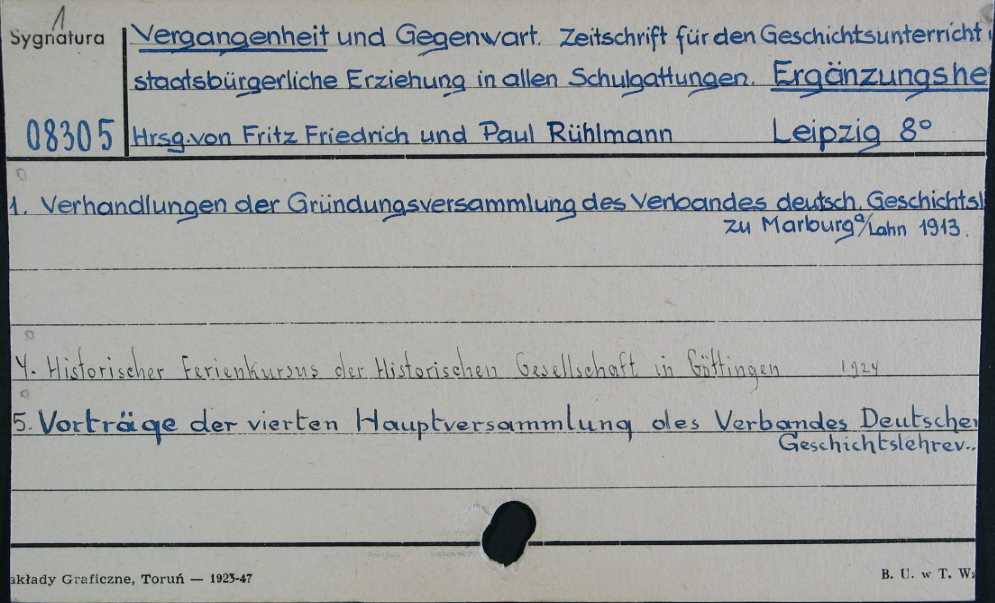 1
Sygnatura
Vergangenheit und Gegenwart. Zeitschrift für den Geschichtsunterricht
staatsbürgerliche Erziehung in allen Schulgattungen. Ergänzungshe
08305 Hrsg. von Fritz Friedrich und Paul Rühlmann Leipzig 8°
1. Verhandlungen der Gründungsversammlung des Verbandes deutsch. Geschichtsl
zu Marburg a/Lahn 1913.
4. Historischer Ferienkursus der Historischen Gesellschaft in Göttingen 1924
5. Vorträge der vierten Hauptversammlung des Verbandes Deutscher
Geschichtslehrer..
akłady Graficzne, Toruń — 1923-47
B. U. w T. W